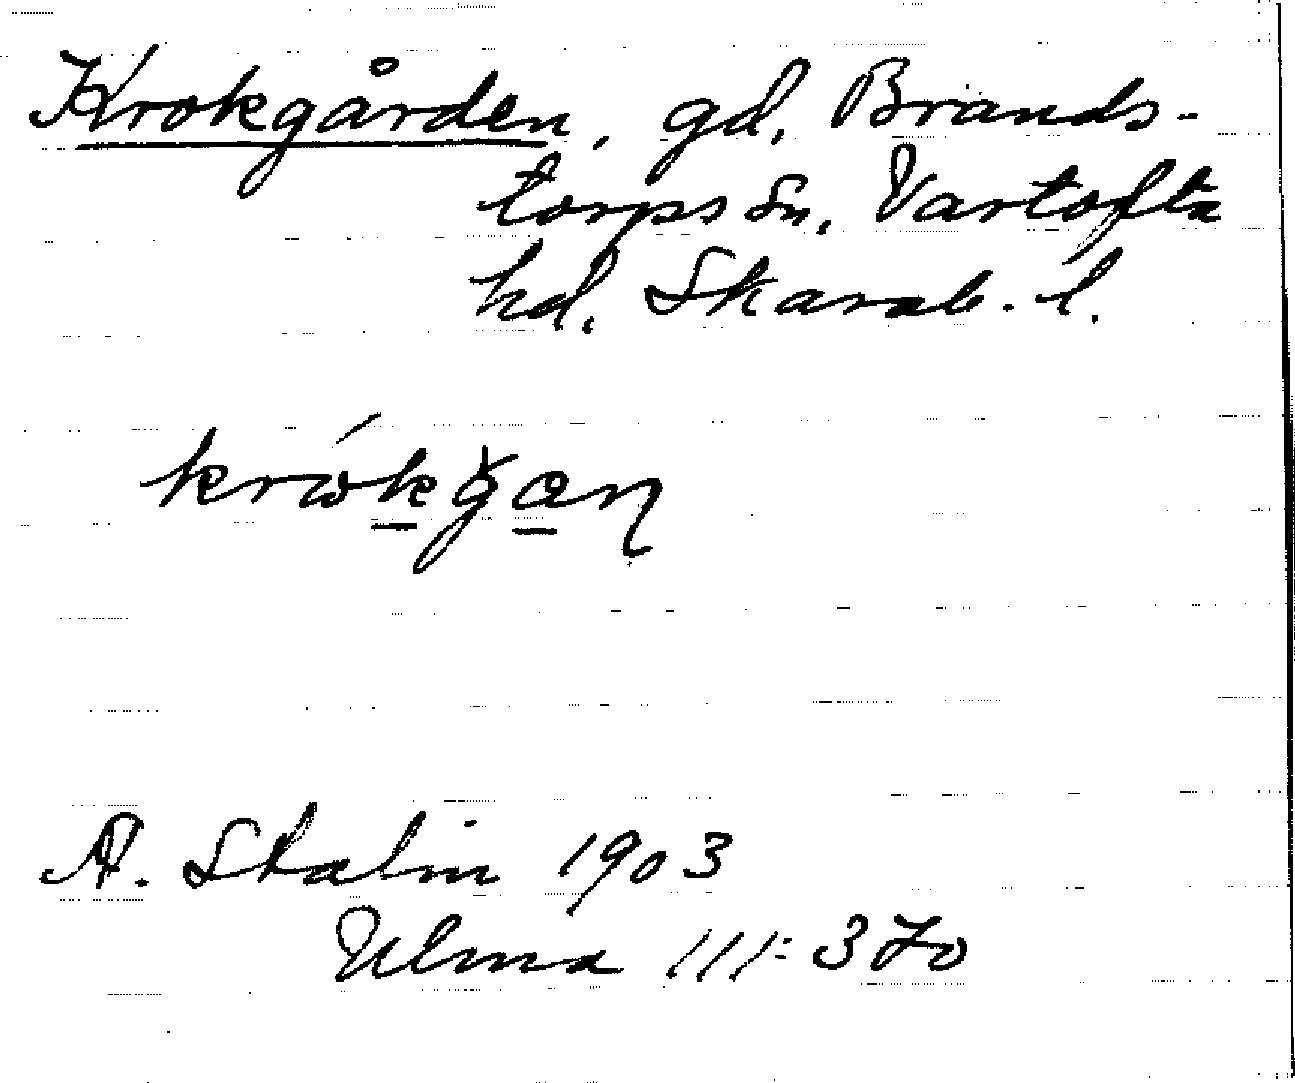 Krokgården, gd, Brands-
torps sn, Vartofta
hd, Skarab. l.
A. Stalin 1903
Ulma 111:370